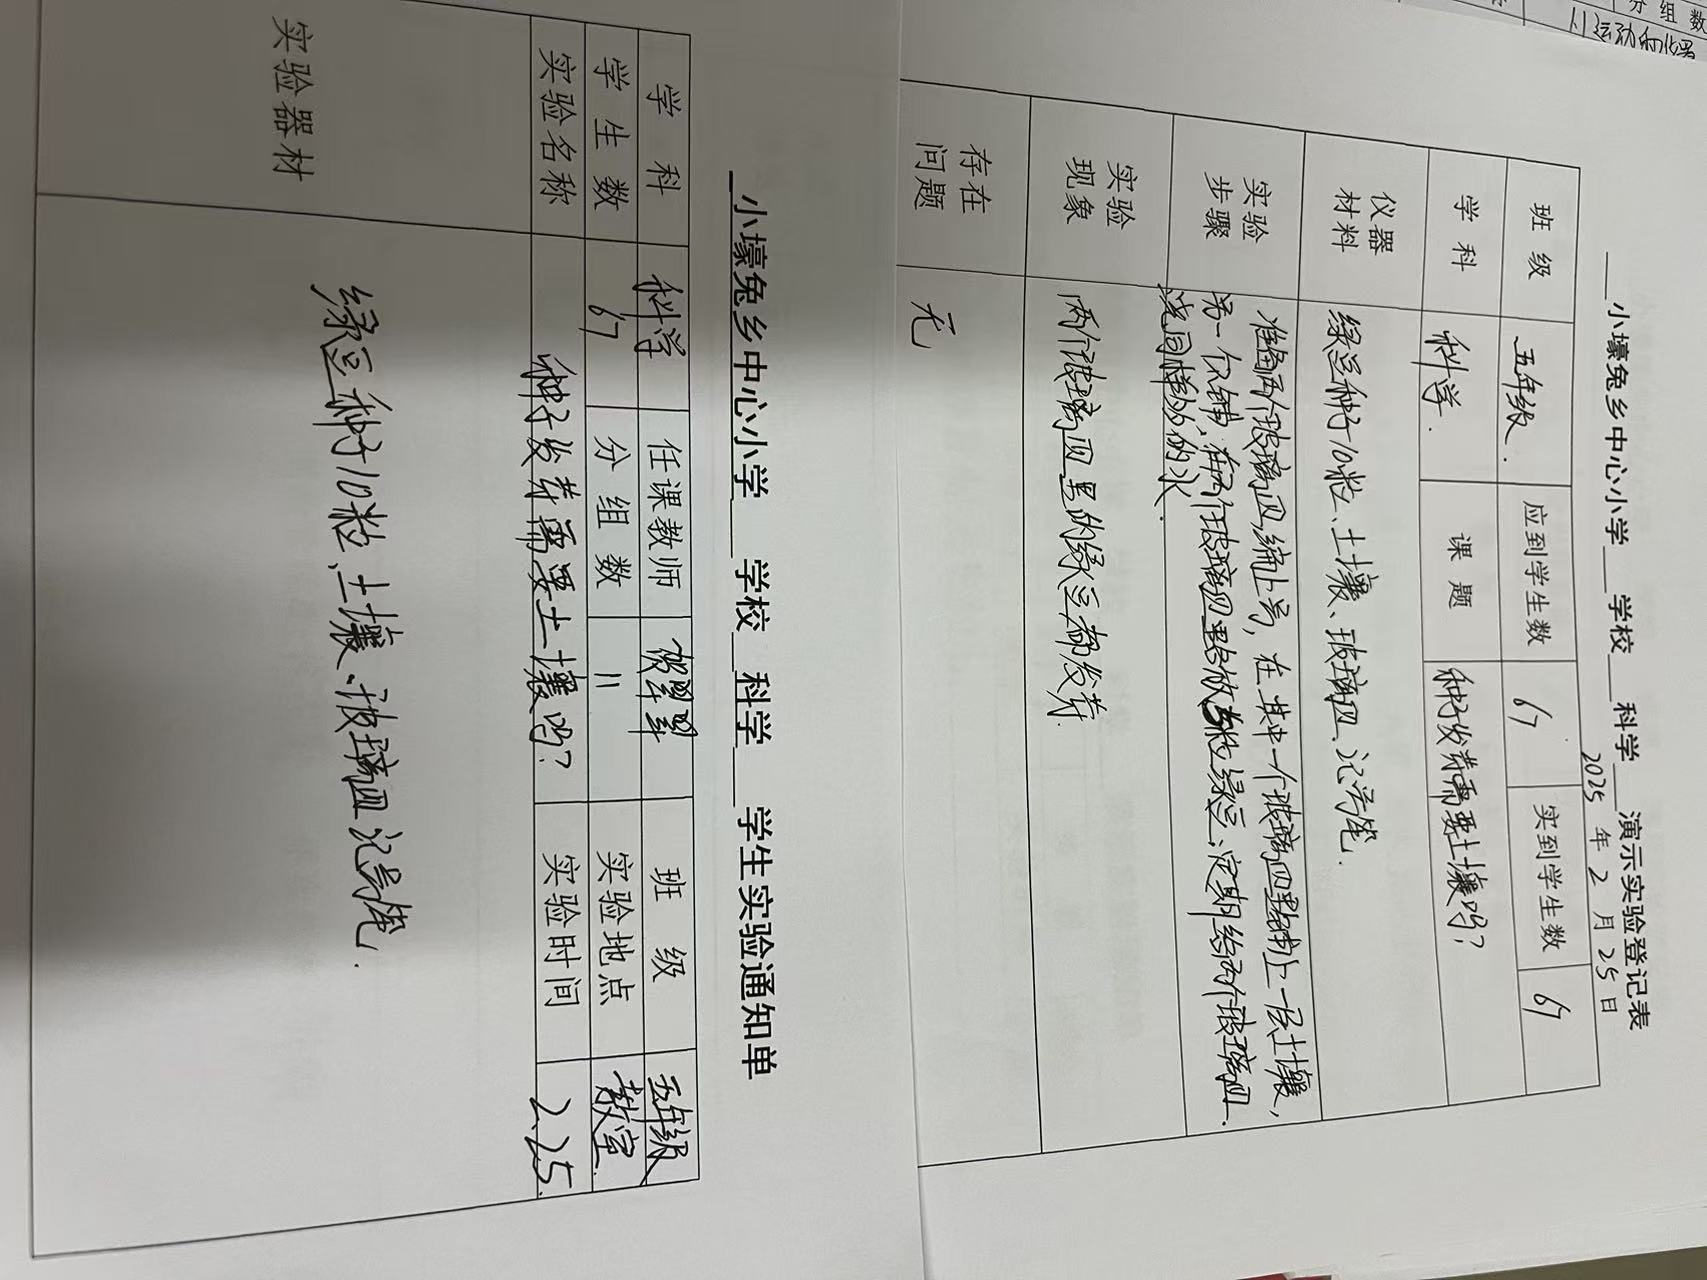 小壕兔乡中心小学 学校 科学 演示实验登记表
2025 年 2 月 25 日
班 级 五年级. 应到学生数 67 实到学生数 67
学 科 科学. 课 题 种子发芽需要土壤吗?
仪器材料 绿豆种子10粒、土壤、玻璃皿、记号笔.
实验步骤 准备两个玻璃皿,编上号,在其中一个玻璃皿里铺上一层土壤,
另一个不铺,在两个玻璃皿里各放5粒绿豆,定期给两个玻璃皿.
浇同样多的水.
实验现象 两个玻璃皿里的绿豆都发芽.
存在问题 无
小壕兔乡中心小学 学校 科学 学生实验通知单
学 科 科学 任课教师 班 级 五年级
学 生 数 67 分 组 数 11 实验地点 教室.
实验名称 种子发芽需要土壤吗? 实验时间 2.25.
实验器材 绿豆种子10粒、土壤、玻璃皿 记号笔.
分 组 数
运动的